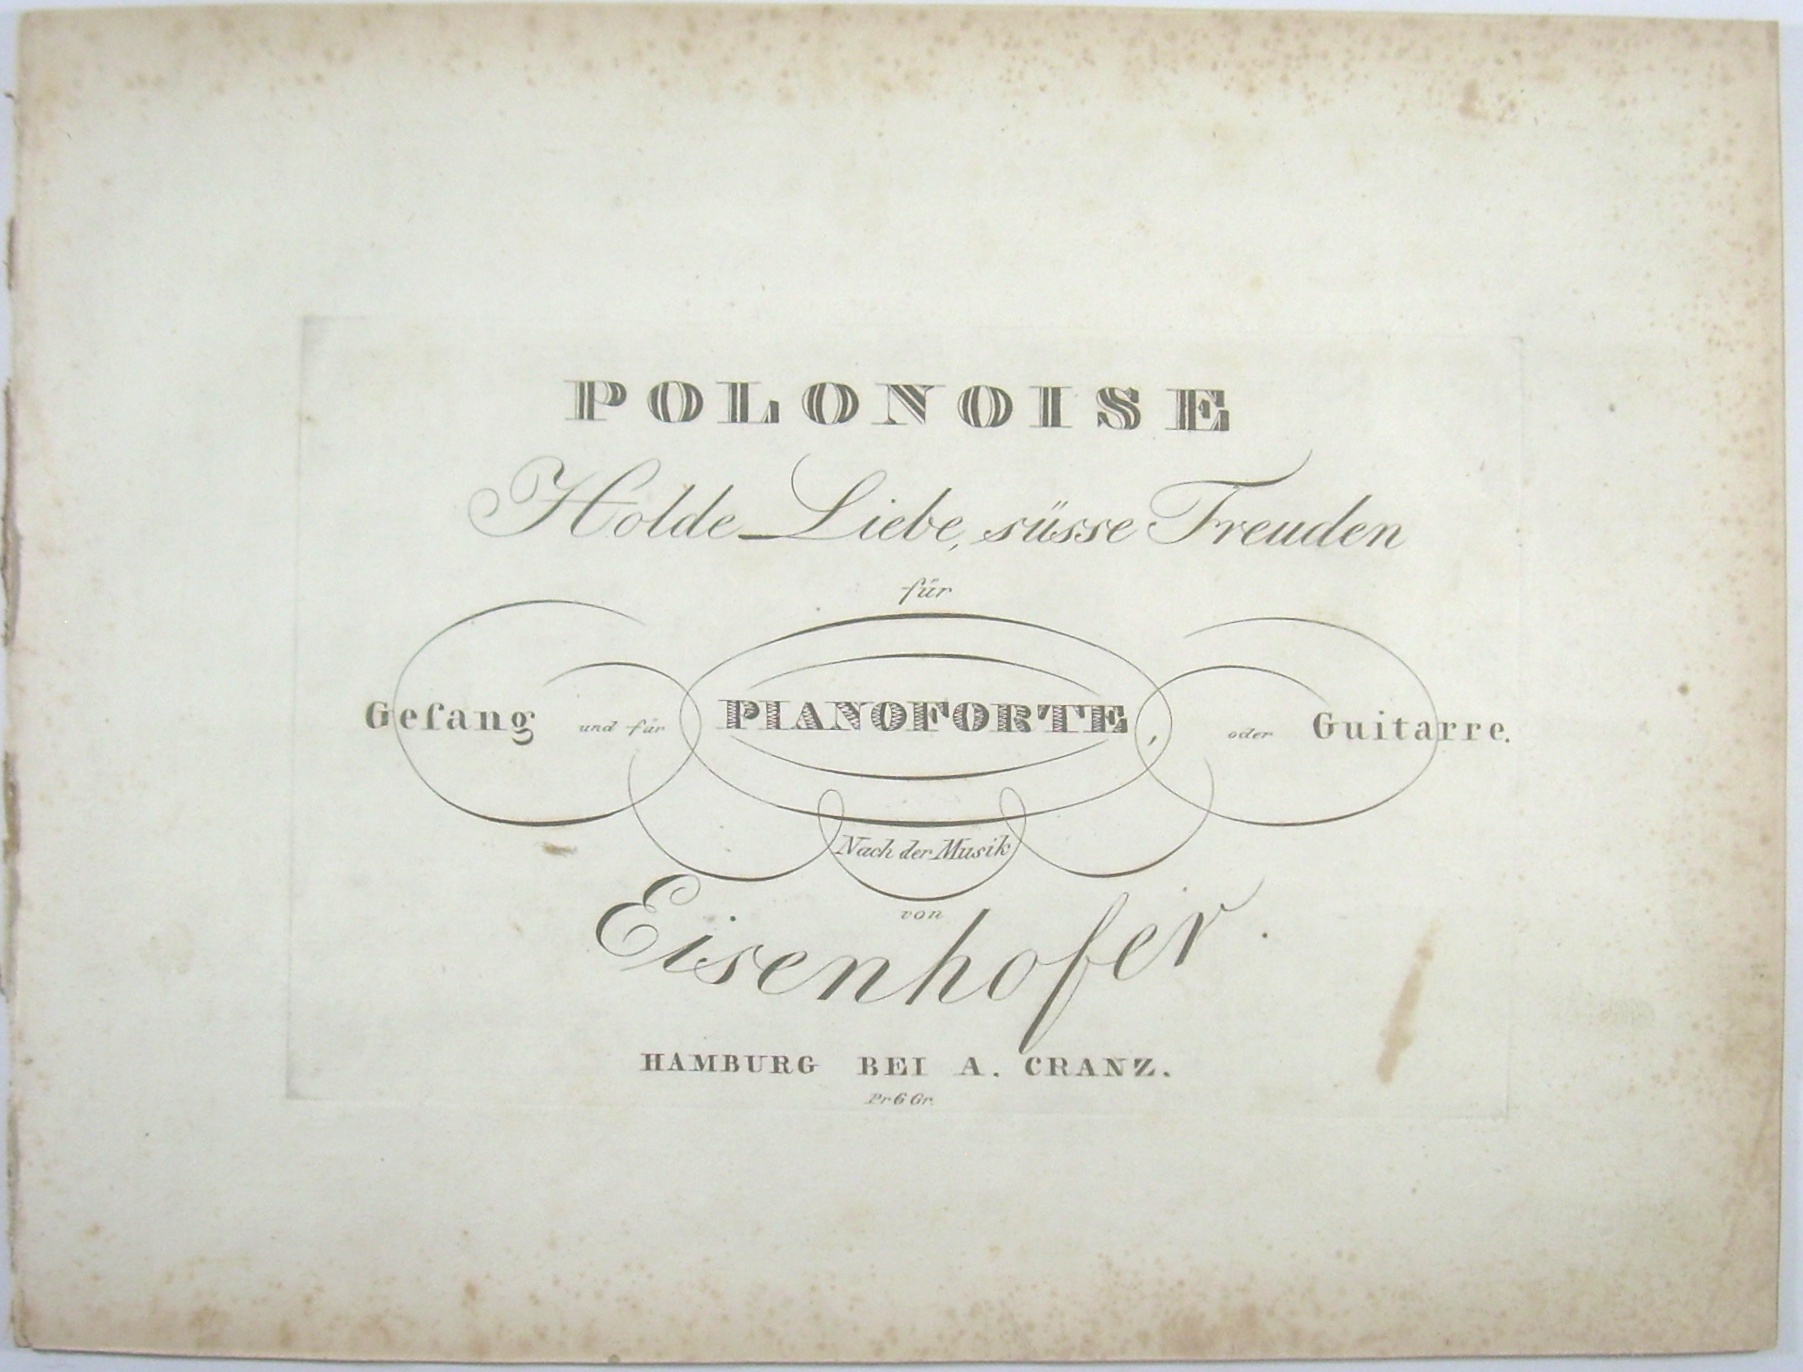 POLONOISE
Holde Liebe, süsse Freuden
für
Geſang und für PIANOFORTE, oder Guitarre.
Nach der Musik
von
Eisenhofer.
HAMBURG BEI A. CRANZ.
Pr 6 Gr.